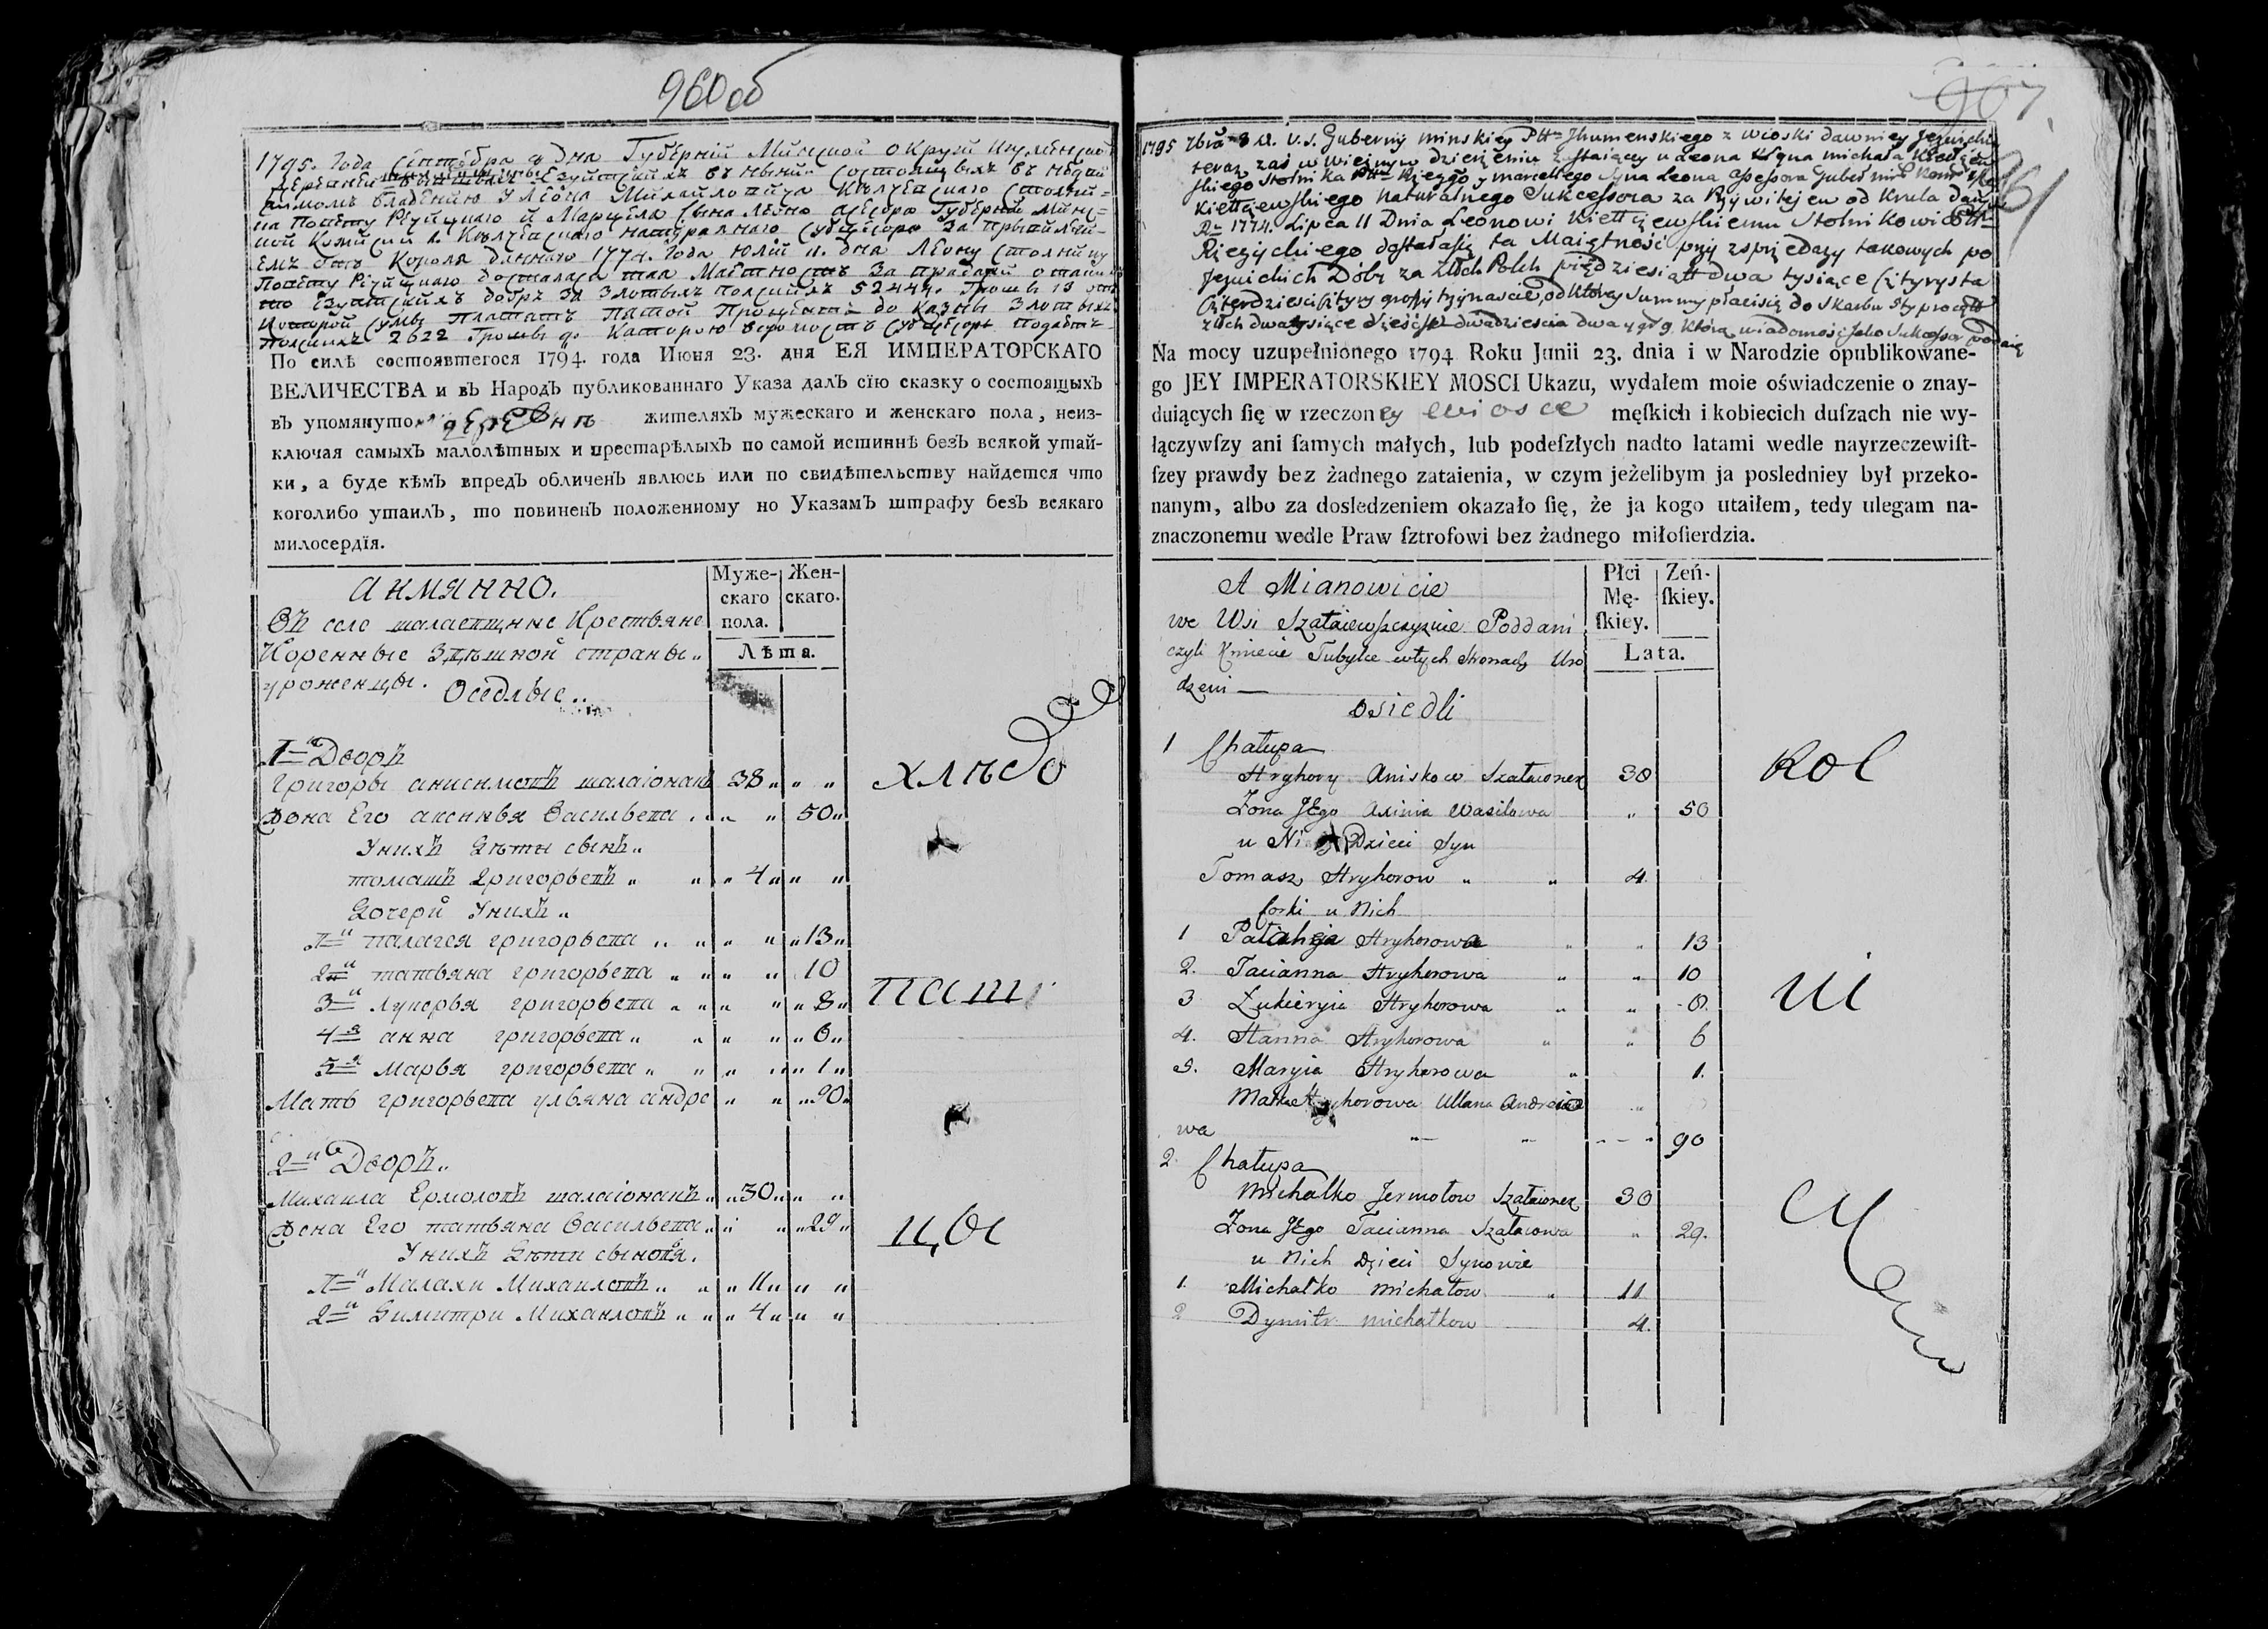 960об
1795. Года Сентября 8 Дня Губернiй Минской округи Игуменской
владению У Леона Михайловича
на Повету Речицкаго и Марцела сына Леона асесора Губернiй Минс=
ной
Короля данного 1774. Года Июлiй 11. дна Леону столнику
Повету Речицкаго досталась тая Маетность За продажи
добръ За Злотыхъ полскихъ 52444. Грошъ 13
Которой сумы плататъ пятой Процентъ до Казны Злотыхъ
полскихъ 2622 Грошъ 9.
По силѣ состоявшегося 1794. года Июня 23. дня ЕЯ ИМПЕРАТОРСКАГО
ВЕЛИЧЕСТВА и въ Народѣ публикованнаго Указа далъ сїю сказку о состоящыхъ
въ упомянутой деревнѣ жителяхъ мужескаго и женскаго пола, неиз-
ключая самыхъ малолѣтных и престарѣлыхъ по самой истиннѣ безъ всякой утай-
ки, а буде кѣмъ впредъ обличенъ явлюсь или по свидѣтельству найдется что
коголибо утаилъ, то повиненъ положенному по Указамъ штрафу безъ всякаго
милосердїя.
Муже-скаго пола. Жен-скаго.
Лѣта.
анмянно.
Въ селе шалаевщине Крестьяне
Коренные Здѣшной страны
уроженцы. Оседлые
1й Дворъ
Григоры анисимовъ шалаіонакъ 38
Жона Его аксинья Васильева 50
Унихъ Дѣти сынъ
томашъ Григорьевъ 4
Дочери Унихъ
1я палагея григорьева 13
2я татьяна григорьева 10
3я лукерья григорьева 8
4я анна григорьева 6
5я Марья григорьева 1
Мать григорьева ульяна андре 90
2й Дворъ
Михаила Ермоловъ шалаіонакъ 30
Жена Его татьяна Васильева 29
Унихъ Дѣти сыновя.
1й Малахи Михаиловъ 11
2й Димитри Михаиловъ 4
хлѣбо
паш
цы
961
1795 7bra 8 d. v.s. Gubernij minskiey Ptt Jhumenskiego z wioski dawniey Jezuickiey
teraz zaś w wieznym dzierżeniu zostaiący u Leona Syna michała
skiego Stolnika Ptt Rzeczgo y marcellego Syna Leona assessora
Kiełczewskiego naturalnego Sukcessora za Przywilejem od Krula
Ru 1774. Lipca 11 Dnia Leonowi Kiełczewskiemu Stolnikowi Ptt
Rzeczyckiego dostałasię ta Maiętność przy zsprzedazy takowych po
Jezuickich Dóbr za złłch Polch pięćdziesiątt dwa tysiące Cztyrysta
Czterdziesci Cztyry groszy trzynascie, od którey Summy płacisię do Skarbu 5ty procętt
złłch dwatysiące szesćset dwadziescia dwa y gr 9. Którą wiadomość Jako Sukcessor podaię
Na mocy uzupełnionego 1794 Roku Junii 23. dnia i w Narodzie opublikowane-
go JEY IMPERATORSKIEY MOSCI Ukazu, wydałem moie oświadczenie o znay-
duiących ſię w rzeczoney wiosce męſkich i kobiecich duſzach nie wy-
łączywſzy ani ſamych małych, lub podeſzłych nadto latami wedle nayrzeczewiſt-
ſzey prawdy bez żadnego zataienia, w czym jeżelibym ja posledniey był przeko-
nanym, albo za dosledzeniem okazało ſię, że ja kogo utaiłem, tedy ulegam na-
znaczonemu wedle Praw ſztrofowi bez żadnego miłoſierdzia.
Płci Mę-ſkiey. Zeń-ſkiey.
Lata.
A Mianowicie
we Wsi Szałaiewszczyznie Poddani
czyli Kmiecie Tubylce wtych stronach Uro
dzeni
osiedli
1 Chałupa
Hryhory Aniskow Szałaionek 38
Zona JEgo Axinia Wasilowa 50
u Nich Dzieci Syn
Tomasz Hryhorow 4
Corki u Nich
1 Pałaheja Hryhorowa 13
2. Tacianna Hryhorowa 10
3 Łukieryia Hryhorowa 8.
4. Hanna Hryhorowa 6
5. Maryia Hryhorowa 1.
Matka Hryhorowa Ullana Andreie
wa 90
2 Chałupa
Michałko Jermołow Szałaionek 30
Zona JEgo Tacianna Szałaiowa 29.
u Nich Dzieci Synowie
1. Michałko Michałow 11
2 Dymitr michałkow 4.
Rol
ni
cy